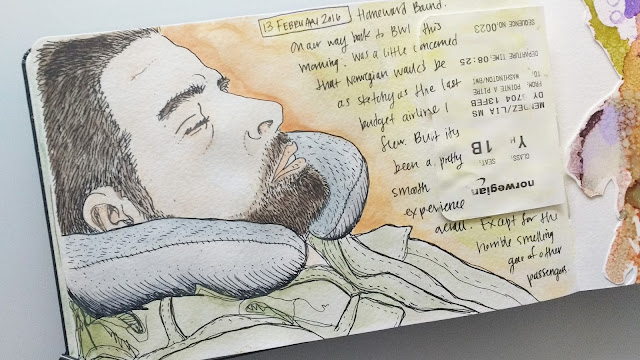 13 FEBRUARY 2016 Homeward Bound.
On our way back to BWI this
morning. Was a little concerned
that Norwegian would be
as sketchy as the last
budget airline I
flew. But it's
been a pretty
smooth
experience
overall. Except for the
horrible smelling
gear of other
passengers.
norwegian
CLASS: SEAT:
Y 1B
MENDEZ/LIA MS
DY 3704 13FEB
FROM: POINTE PITRE
TO: WASHINGTON/BWI
DEPARTURE TIME: 08:25
SEQUENCE NO.0023